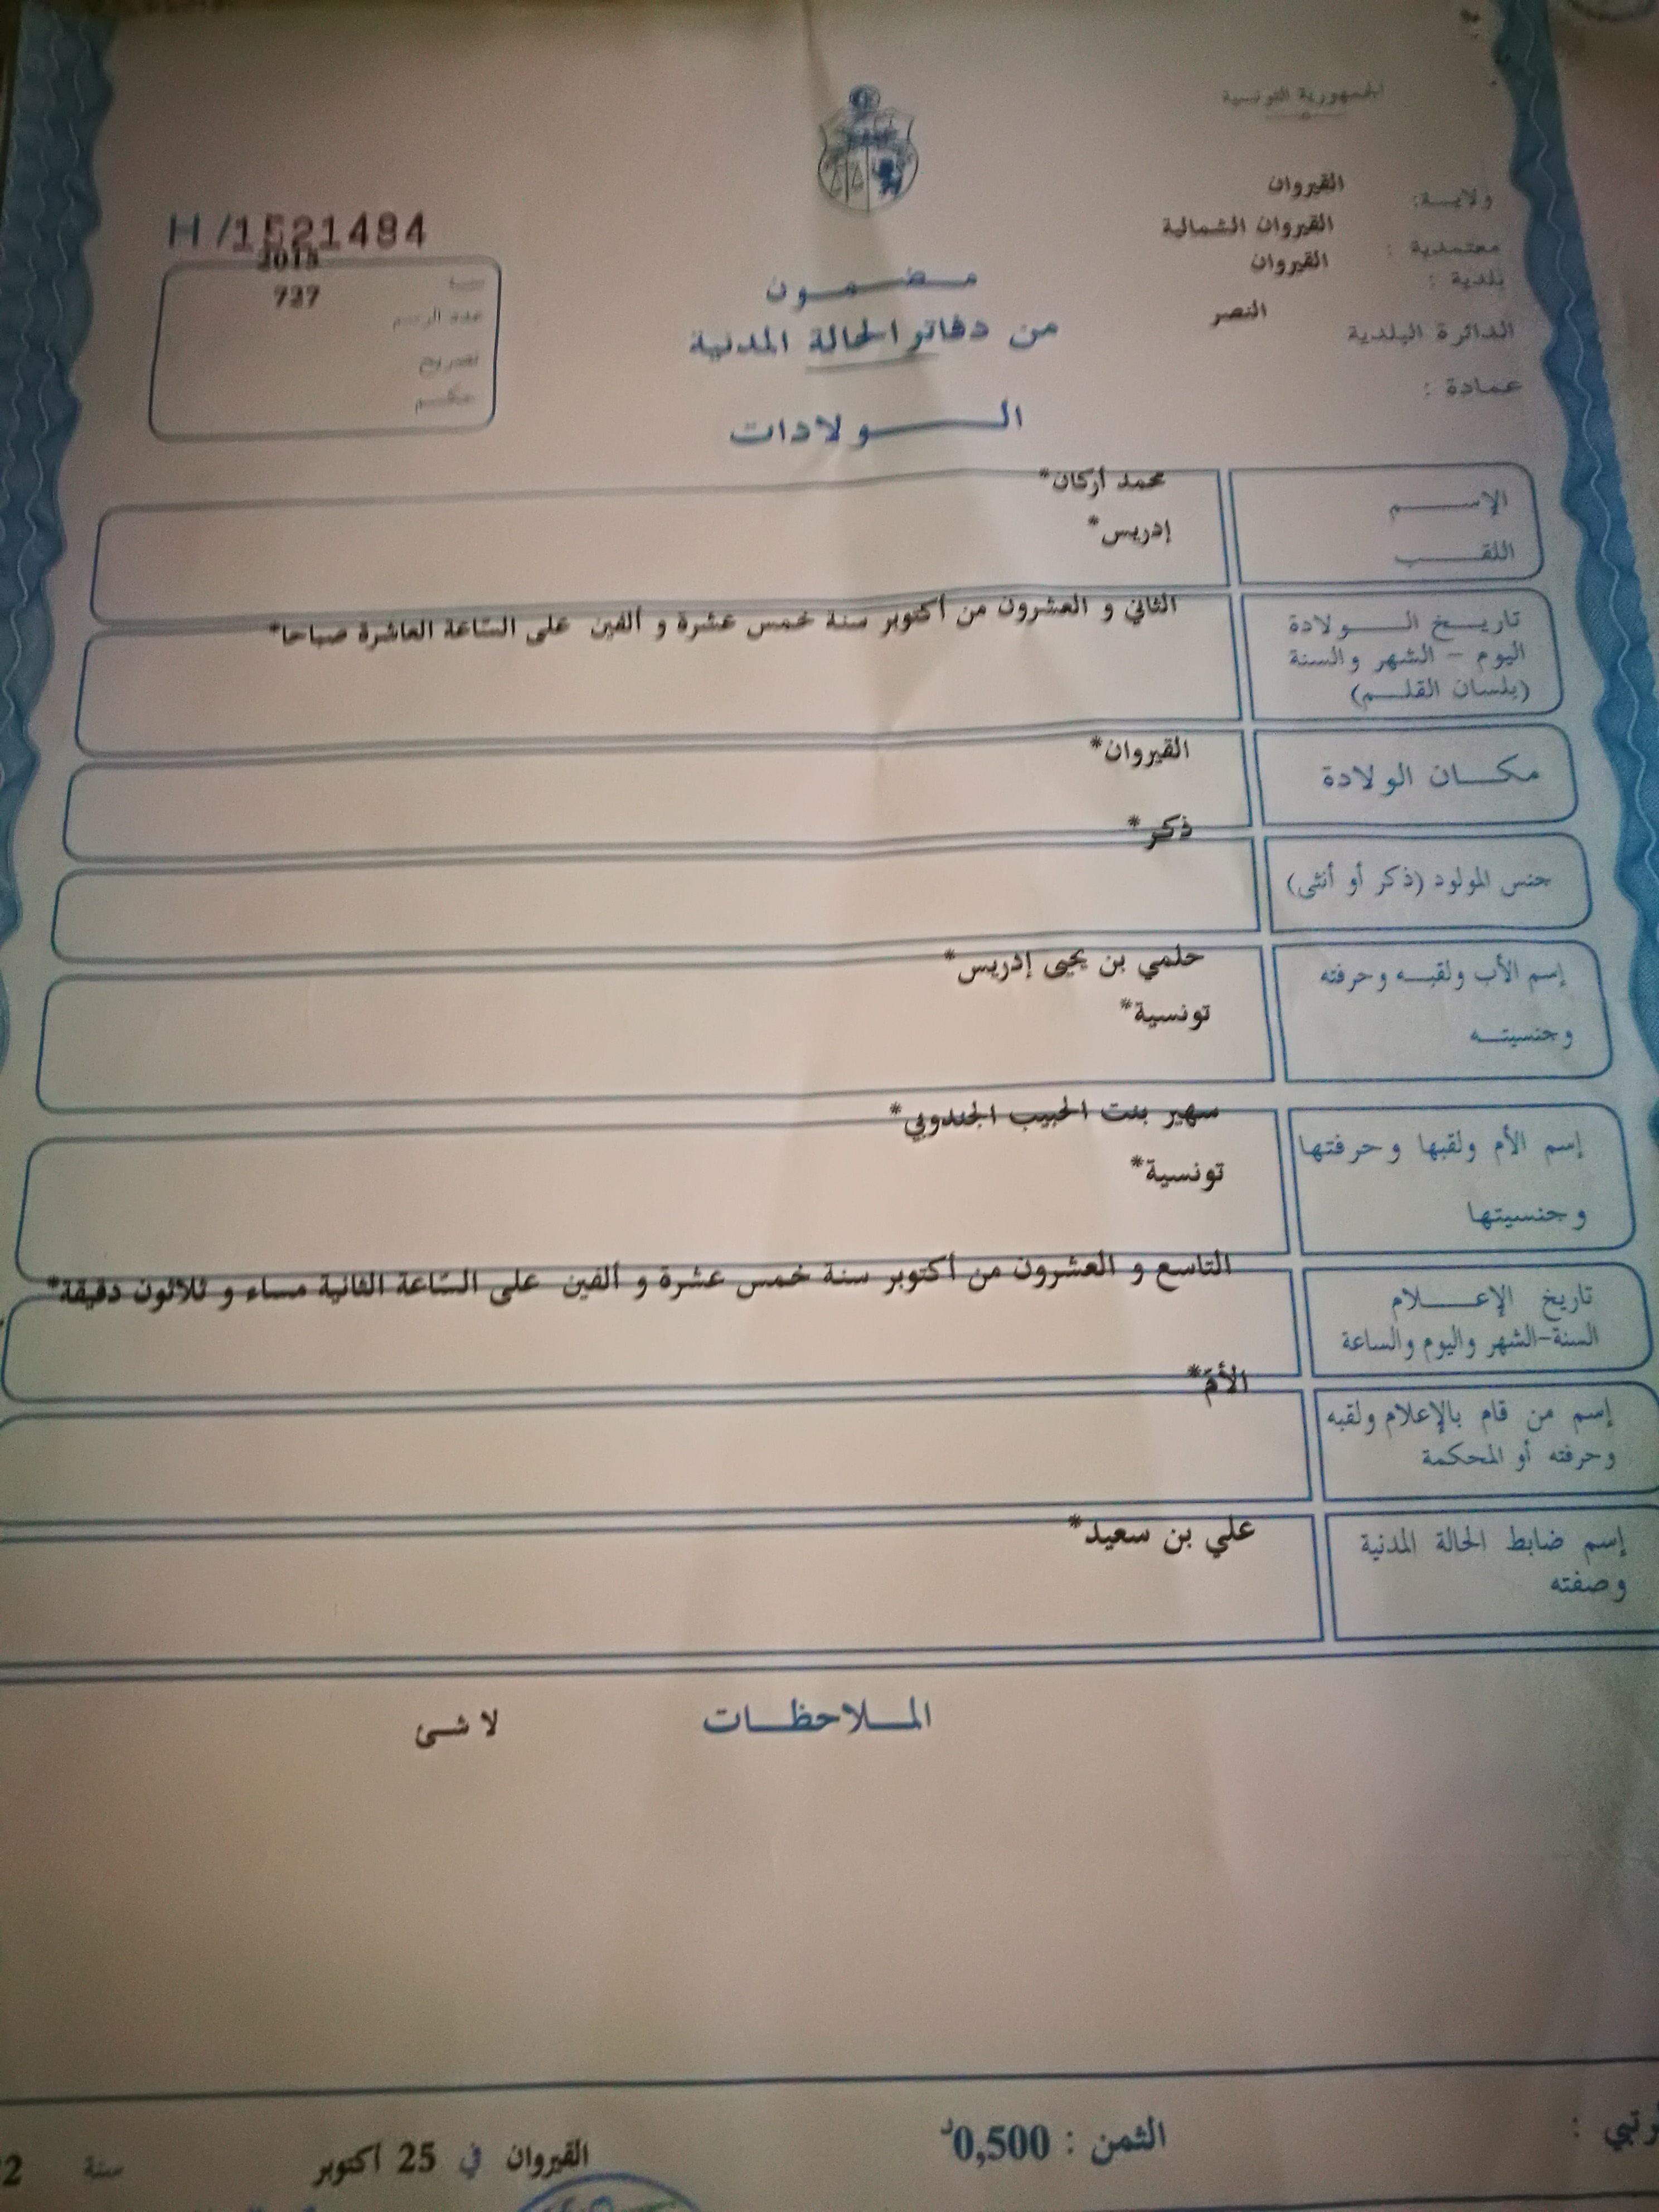 الجمهورية التونسية
ولايــة: القيروان
معتمدية : القيروان الشمالية
بلدية : القيروان
الدائرة البلدية النصر
عمادة :
H/1521484
سنة 2015
عدد الرسم 727
تصريح
حكم
مضمون
من دفاتر الحالة المدنية
الولادات
الإسم محمد أركان*
اللقب إدريس*
تاريخ الولادة الثاني و العشرون من أكتوبر سنة خمس عشرة و ألفين على الساعة العاشرة صباحا*
اليوم - الشهر والسنة
(بلسان القلم)
مكان الولادة القيروان*
جنس المولود (ذكر أو أنثى) ذكر*
إسم الأب ولقبه وحرفته حلمي بن يحيى إدريس*
وجنسيته تونسية*
إسم الأم ولقبها وحرفتها سهير بنت الحبيب الجندوبي*
وجنسيتها تونسية*
تاريخ الإعلام التاسع و العشرون من أكتوبر سنة خمس عشرة و ألفين على الساعة الثانية مساء و ثلاثون دقيقة*
السنة-الشهر واليوم والساعة
إسم من قام بالإعلام ولقبه الأم*
وحرفته أو المحكمة
إسم ضابط الحالة المدنية علي بن سعيد*
وصفته
الملاحظات لا شئ
الثمن : 0,500د
القيروان في 25 أكتوبر سنة